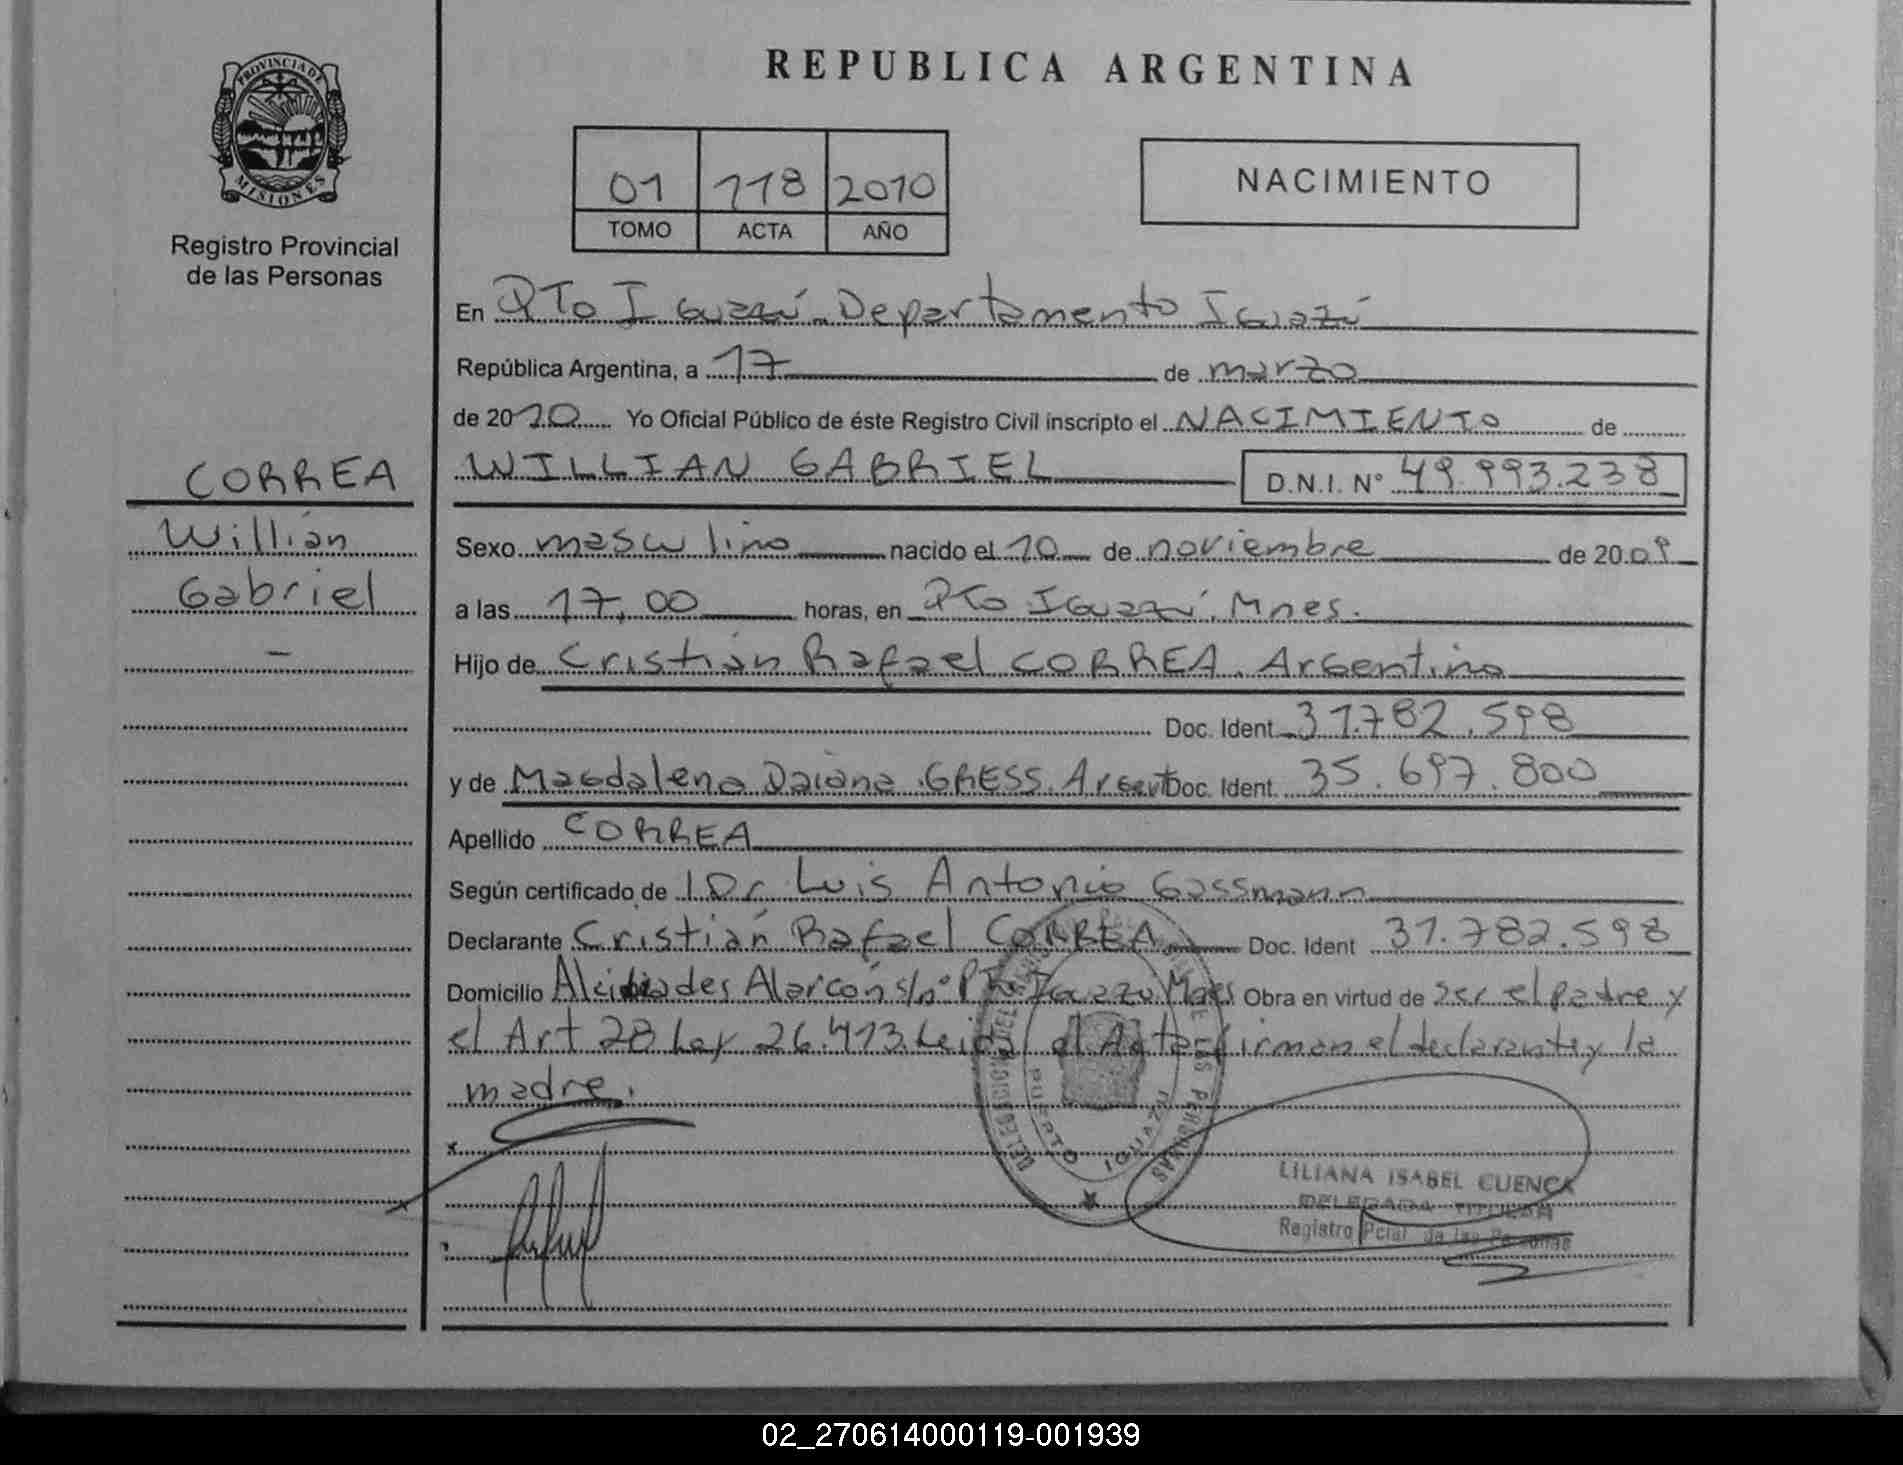 REPUBLICA ARGENTINA
PROVINCIA DE
MISIONES
Registro Provincial
de las Personas
01 118 2010
TOMO ACTA AÑO
NACIMIENTO
En Pto Iguazú - Departamento Iguazú
República Argentina, a 17 de marzo
de 2010 Yo Oficial Público de éste Registro Civil inscripto el NACIMIENTO de
WILLIAN GABRIEL D.N.I. Nº 49.993.238
CORREA
Willián
Gabriel
-
Sexo masculino nacido el 10 de noviembre de 2009
a las 17,00 horas, en Pto Iguazú, Mnes.
Hijo de Cristián Rafael CORREA. Argentino
Doc. Ident. 31.782.598
y de Magdalena Daiana GRESS. Argent Doc. Ident. 35.697.800
Apellido CORREA
Según certificado de 1 Dr Luis Antonio Gassmann
Declarante Cristián Rafael CORREA Doc. Ident 31.782.598
Domicilio Alcibiades Alarcón s/nº Pto Iguazú Mnes Obra en virtud de ser el padre y
el Art 28 Ley 26.413. Leida el Acta firman el declarante y la
madre.
PUERTO IGUAZU
LILIANA ISABEL CUENCA
DELEGADA TITULAR
Registro Pcial de las Personas
02_270614000119-001939